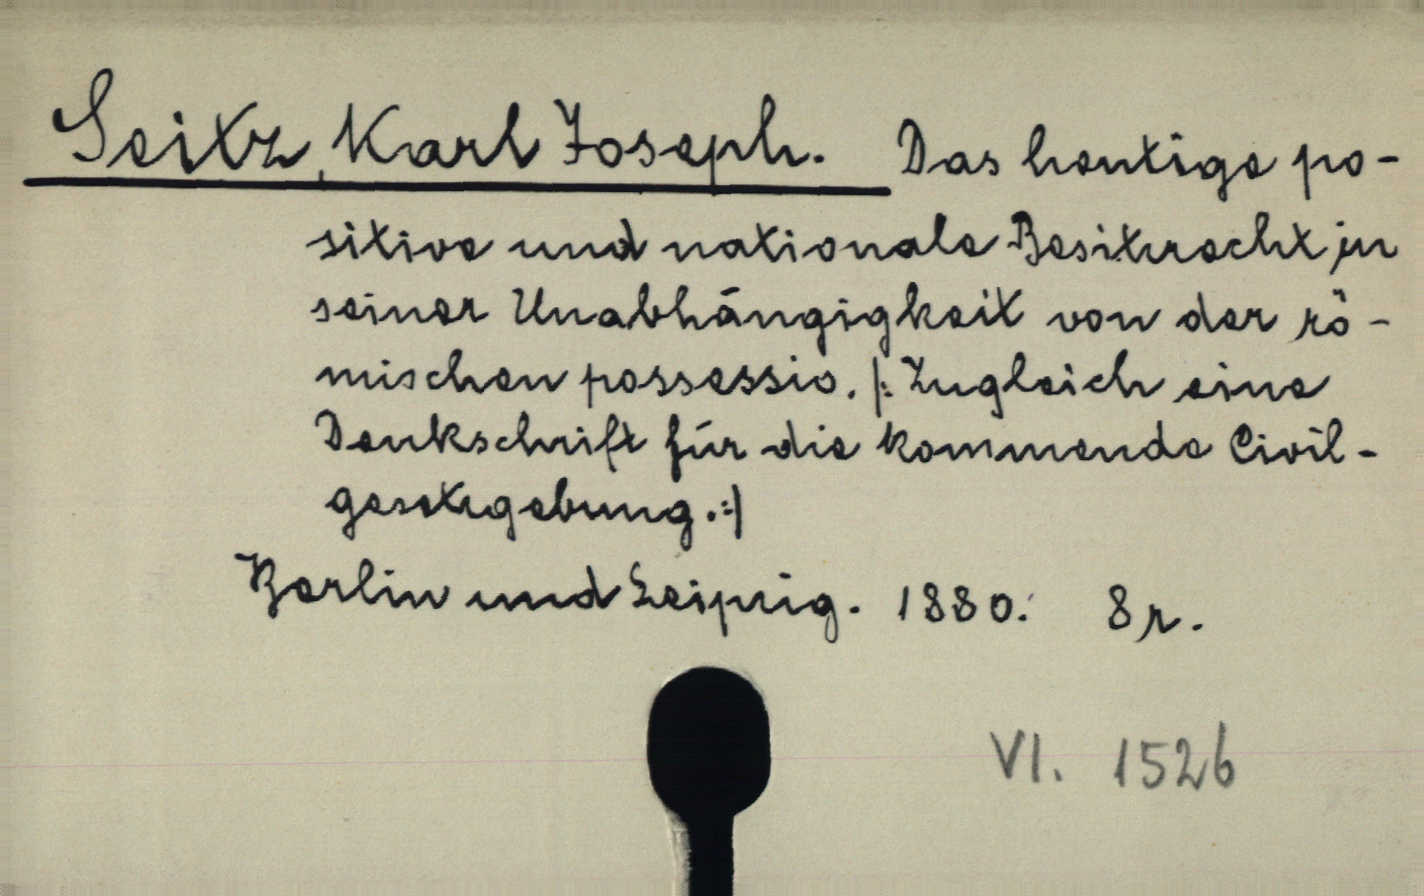 Seitz, Karl Joseph. Das heutige po-
sitive und nationale Besitzrecht in
seiner Unabhängigkeit von der rö-
mischen possessio. |: Zugleich eine
Denkschrift für die kommende Civil-
gesetzgebung. :|
Berlin und Leipzig. 1880. 8r.
VI. 1526